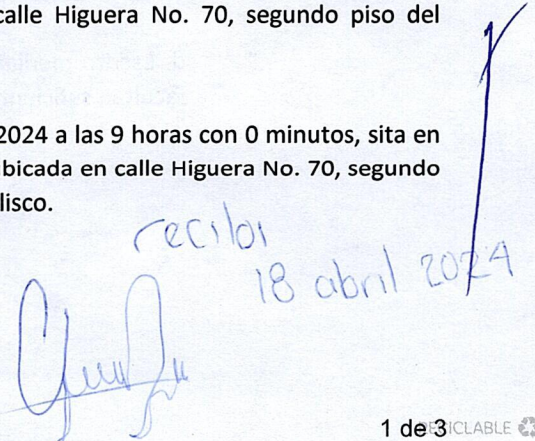 calle Higuera No. 70, segundo piso del
2024 a las 9 horas con 0 minutos, sita en
ubicada en calle Higuera No. 70, segundo
lisco.
recibi
18 abril 2024
1 de 3 RECICLABLE